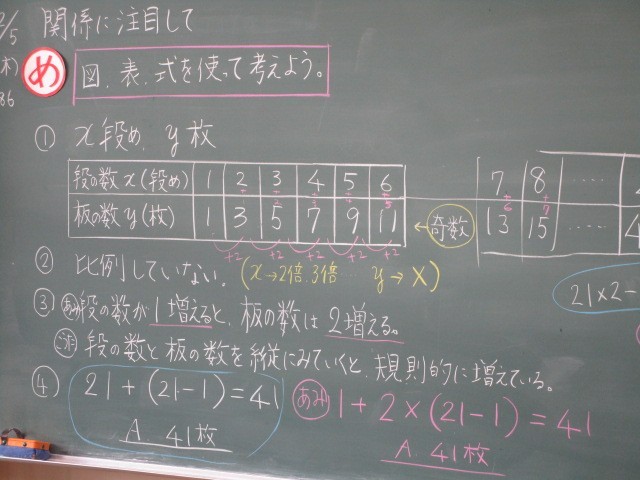 2/5 関係に注目して
(木)
め 図、表、式を使って考えよう。
86
① x段め、y枚
段の数x(段め) 1 2 3 4 5 6 7 8 ……
板の数y(枚) 1 3 5 7 9 11 ←奇数 13 15 ……
+2 +2 +2 +2 +2
② 比例していない。(x→2倍、3倍… y→×)
21×2-
③ あみ 段の数が1増えると、板の数は2増える。
段の数と板の数を縦にみていくと、規則的に増えている。
④ 21+(21-1)=41
A 41枚
あみ 1+2×(21-1)=41
A 41枚